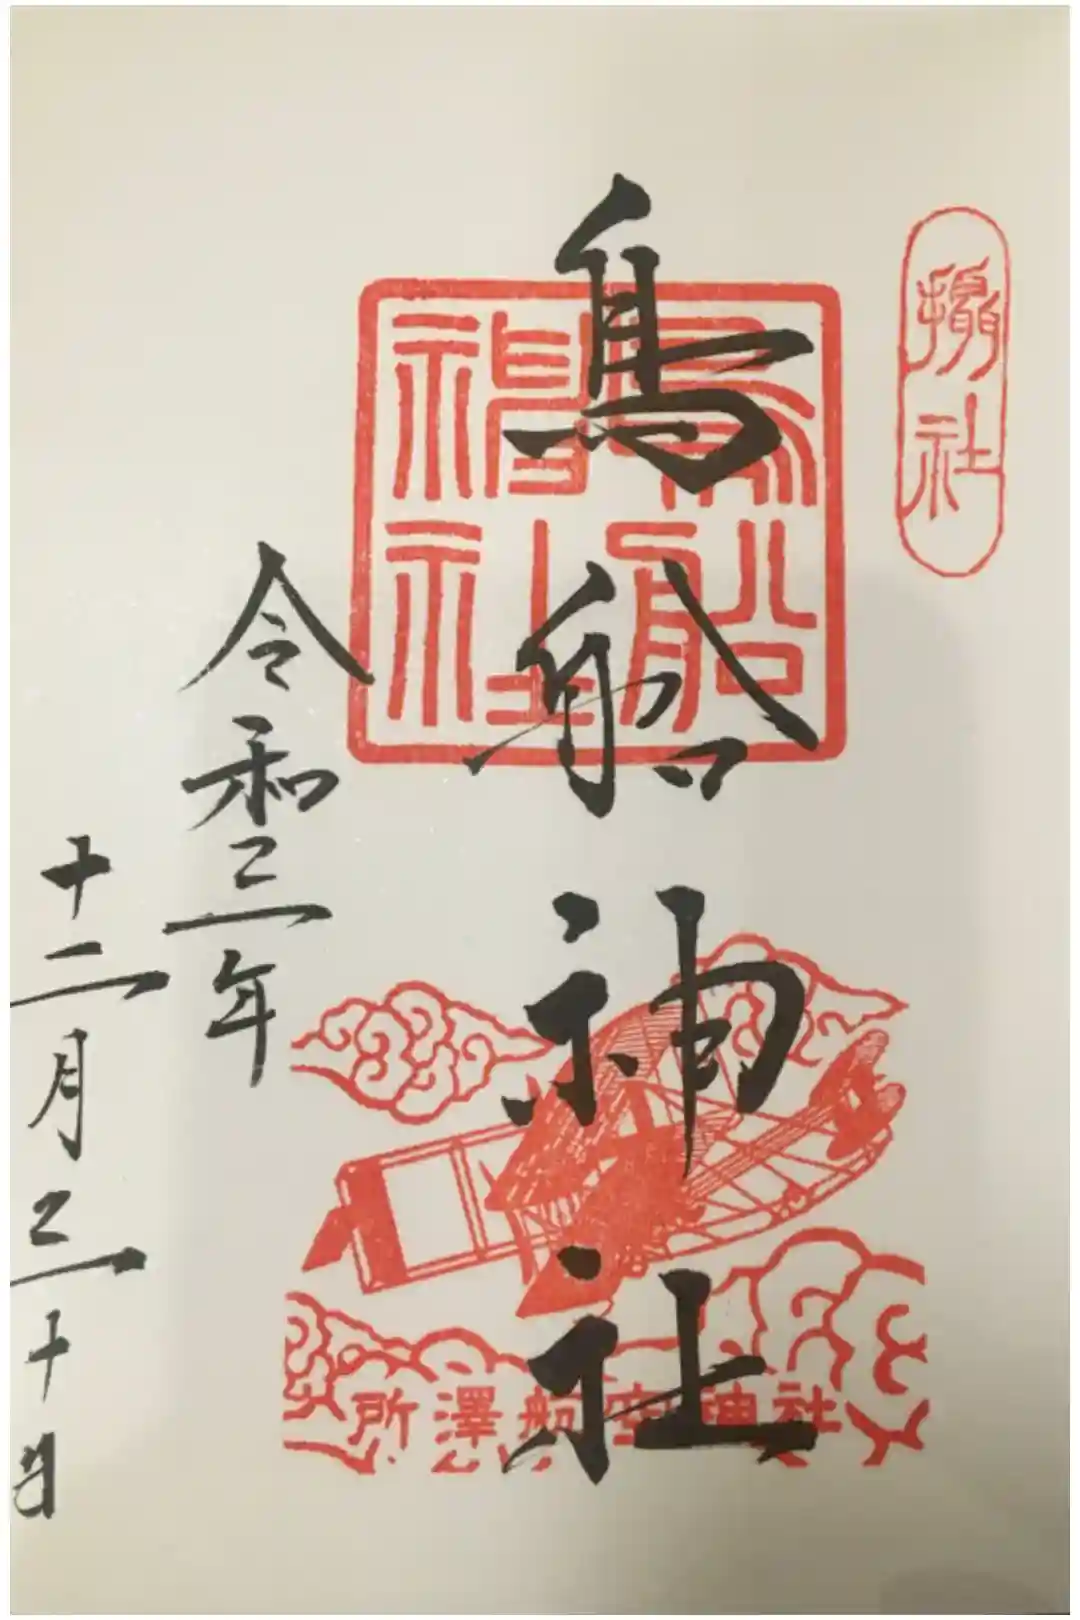 摂社
鳥船神社
鳥船神社
所澤航空神社
令和三年
十二月三十日